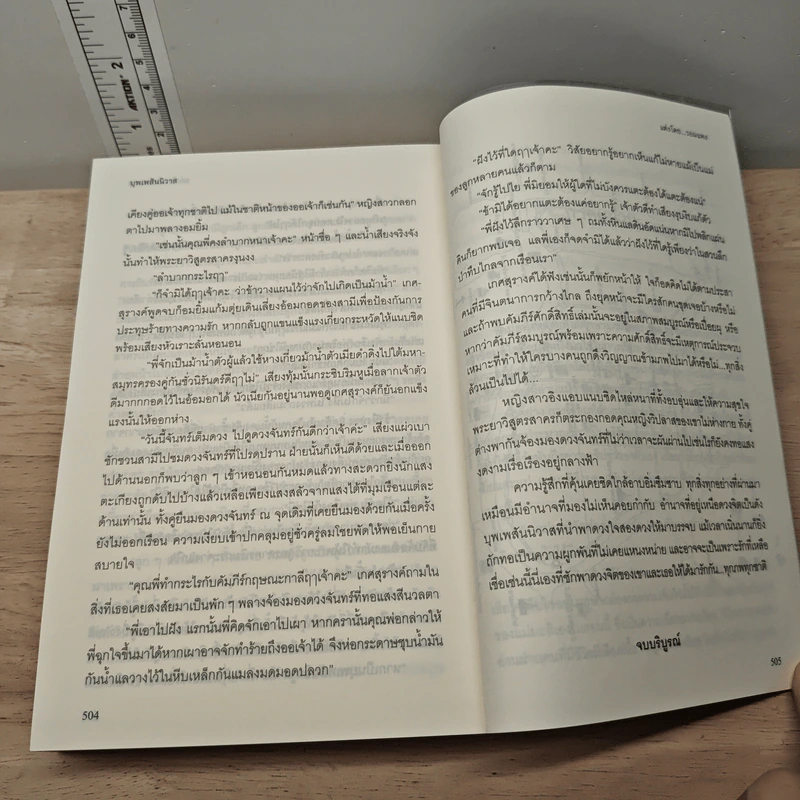 AKTION
บุพเพสันนิวาส
เคียงคู่ออเจ้าทุกชาติไป แม้ในชาติหน้าของออเจ้าก็เช่นกัน" หญิงสาวกลอก
ตาไปมาพลางอมยิ้ม
"เช่นนั้นคุณพี่คงลำบากหนาเจ้าคะ" หน้าซื่อ ๆ และน้ำเสียงจริงจัง
นั้นทำให้พระยาวิสูตรสาครงุนงง
"ลำบากกระไรฤๅ"
"ก็จำมิได้ฤๅเจ้าคะ ว่าข้าวางแผนไว้ว่าจักไปเกิดเป็นม้าน้ำ" เกศ-
สุรางค์พูดจบก็อมยิ้มแก้มตุ่ยเดินเลี่ยงอ้อมกอดของสามีเพื่อป้องกันการ
ประทุษร้ายทางความรัก หากกลับถูกแขนแข็งแรงเกี่ยวกระหวัดให้แนบชิด
พร้อมเสียงหัวเราะลั่นหอนอน
"พี่จักเป็นม้าน้ำตัวผู้แล้วใช้หางเกี่ยวม้าน้ำตัวเมียดำดิ่งไปใต้มหา-
สมุทรครองคู่กันชั่วนิรันดร์ดีฤๅไม่" เสียงทุ้มนั้นกระซิบริมหูเมื่อลากเจ้าตัว
ดีมากกกอดไว้ในอ้อมอกได้ นัวเนียกันอยู่นานพอดูเกศสุรางค์ก็ยันอกแข็ง
แรงนั้นให้ออกห่าง
"วันนี้จันทร์เต็มดวง ไปดูดวงจันทร์กันดีกว่าเจ้าค่ะ" เสียงแผ่วเบา
ชักชวนสามีไปชมดวงจันทร์ที่โปรดปราน ฝ่ายนั้นก็เห็นดีด้วยและเมื่อออก
ไปด้านนอกก็พบว่าลูก ๆ เข้าหอนอนกันหมดแล้วทางสะดวกยิ่งนักแสง
ตะเกียงถูกดับไปบ้างแล้วเหลือเพียงแสงสลัวจากแสงไต้ที่มุมเรือนแต่ละ
ด้านเท่านั้น ทั้งคู่ยืนมองดวงจันทร์ ณ จุดเดิมที่เคยยืนมองด้วยกันเมื่อครั้ง
ยังไม่ออกเรือน ความเงียบเข้าปกคลุมอยู่ชั่วครู่ลมโชยพัดให้พอเย็นกาย
สบายใจ
"คุณพี่ทำกระไรกับคัมภีร์กฤษณะกาลีฤๅเจ้าคะ" เกศสุรางค์ถามใน
สิ่งที่เธอเคยสงสัยมาเป็นพัก ๆ พลางจ้องมองดวงจันทร์ที่ทอแสงสีนวลตา
"พี่เอาไปฝัง แรกนั้นพี่คิดจักเอาไปเผา หากครานั้นคุณพ่อกล่าวให้
พี่ฉุกใจขึ้นมาได้หากเผาอาจจักทำร้ายถึงออเจ้าได้ จึงห่อกระดาษชุบน้ำมัน
กันน้ำแลวางไว้ในหีบเหล็กกันแมลงมดมอดปลวก"
504
แต่งโดย...รอมแพง
"ฝังไว้ที่ใดฤๅเจ้าคะ" วิสัยอยากรู้อยากเห็นแก้ไม่หายแม้เป็นแม่
ของลูกหลายคนแล้วก็ตาม
"จักรู้ไปไย พี่มิยอมให้ผู้ใดที่ไม่บังควรแตะต้องได้แตะต้องแน่"
"ข้ามิได้อยากแตะต้องแค่อยากรู้" เจ้าตัวดีทำเสียงขุบขิบแก้ตัว
"พี่ฝังไว้ลึกราววาเศษ ๆ ถมทั้งหินแลดินอัดแน่นหากมิไปพลิกแผ่น
ดินก็ยากพบเจอ แลพี่เองก็จดจำมิได้แล้วว่าฝังไว้ที่ใดรู้เพียงว่าในสวนลึก
ป่าทึบไกลจากเรือนเรา"
เกศสุรางค์ได้ฟังเช่นนั้นก็พยักหน้าให้ ใจก็อดคิดไม่ได้ตามประสา
คนที่มีจินตนาการกว้างไกล ถึงยุคหน้าจะมีใครสักคนขุดเจอบ้างหรือไม่
และถ้าพบคัมภีร์ศักดิ์สิทธิ์เล่มนั้นจะอยู่ในสภาพสมบูรณ์หรือเปื่อยผุ หรือ
หากว่าคัมภีร์สมบูรณ์พร้อมเพราะความศักดิ์สิทธิ์จะมีเหตุการณ์ประจวบ
เหมาะที่ทำให้ใครบางคนถูกดึงวิญญาณข้ามภพไปมาได้หรือไม่...ทุกสิ่ง
ล้วนเป็นไปได้...
หญิงสาวอิงแอบแนบชิดไหล่หนาที่ทั้งอบอุ่นและให้ความสุขใจ
พระยาวิสูตรสาครก็ตระกองกอดคุณหญิงวิปลาสของเขาไม่ห่างกาย ทั้งคู่
ต่างพากันจ้องมองดวงจันทร์ที่ไม่ว่าเวลาจะผันผ่านไปเช่นไรก็ยังคงทอแสง
งดงามเรื่อเรืองอยู่กลางฟ้า
ความรู้สึกที่คุ้นเคยชิดใกล้อาบอิ่มซึมซาบ ทุกสิ่งทุกอย่างที่ผ่านมา
เหมือนมีอำนาจที่มองไม่เห็นคอยกำกับ อำนาจที่อยู่เหนือดวงจิตเป็นดัง
บุพเพสันนิวาสที่นำพาดวงใจสองดวงให้มาบรรจบ แม้เวลาเนิ่นนานก็ยิ่ง
ถักทอเป็นความผูกพันที่ไม่เคยแหนงหน่าย และอาจจะเป็นเพราะรักที่เหลือ
เชื่อเช่นนี้นี่เองที่ชักพาดวงจิตของเขาและเธอให้ได้มารักกัน...ทุกภพทุกชาติ
จบบริบูรณ์
505